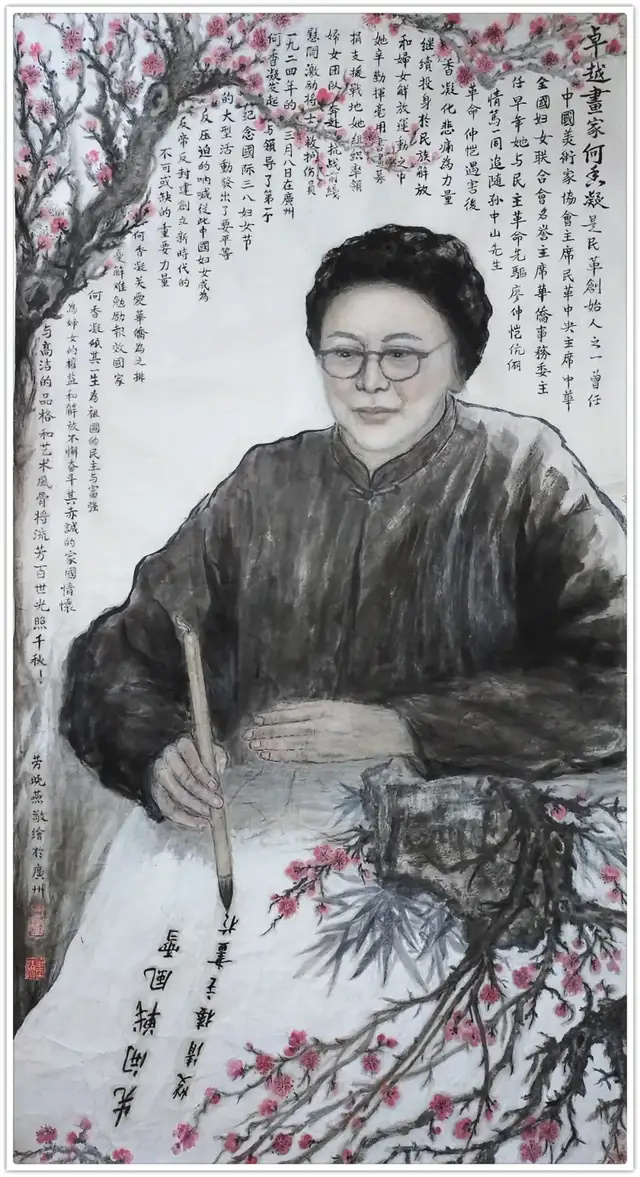 卓越畫家何香凝是民革創始人之一曾任
中國美術家協會主席民革中央主席中華
全國妇女联合會名誉主席華僑事務委主
任早年她与民主革命先驱廖仲恺伉俪
情篤一同追随孙中山先生
革命仲恺遇害後
香凝化悲痛為力量
继續投身於民族解放
和婦女解放運動之中
她辛勤揮毫用募
捐支援戰地她组织率领
婦女团队奔赴抗战前线
慰問激励將士救护伤員
一九二四年的三月八日在廣州
何香凝发起与领導了第一个
記念國际三八妇女节
的大型活動發出了要平等
反压迫的呐喊從此中國妇女成為
反帝反封建創立新時代的
不可或缺的重要力量
何香凝关愛華僑為之排
憂解难勉励报效國家
何香凝砥其一生為祖國的民主与富强
為婦女的權益和解放不懈奋斗其赤誠的家國情懷
与高洁的品格和艺术風骨将流芳百世光照千秋！
劳晓燕敬繪於廣州
先開戰風雪
雙清樓主畫於